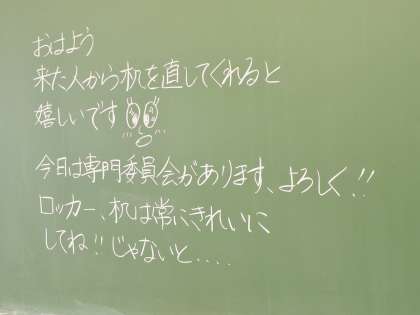 おはよう
来た人から机を直してくれると
嬉しいです
今日は専門委員会があります、よろしく!!
ロッカー、机は常にきれいに
してね!!じゃないと.....